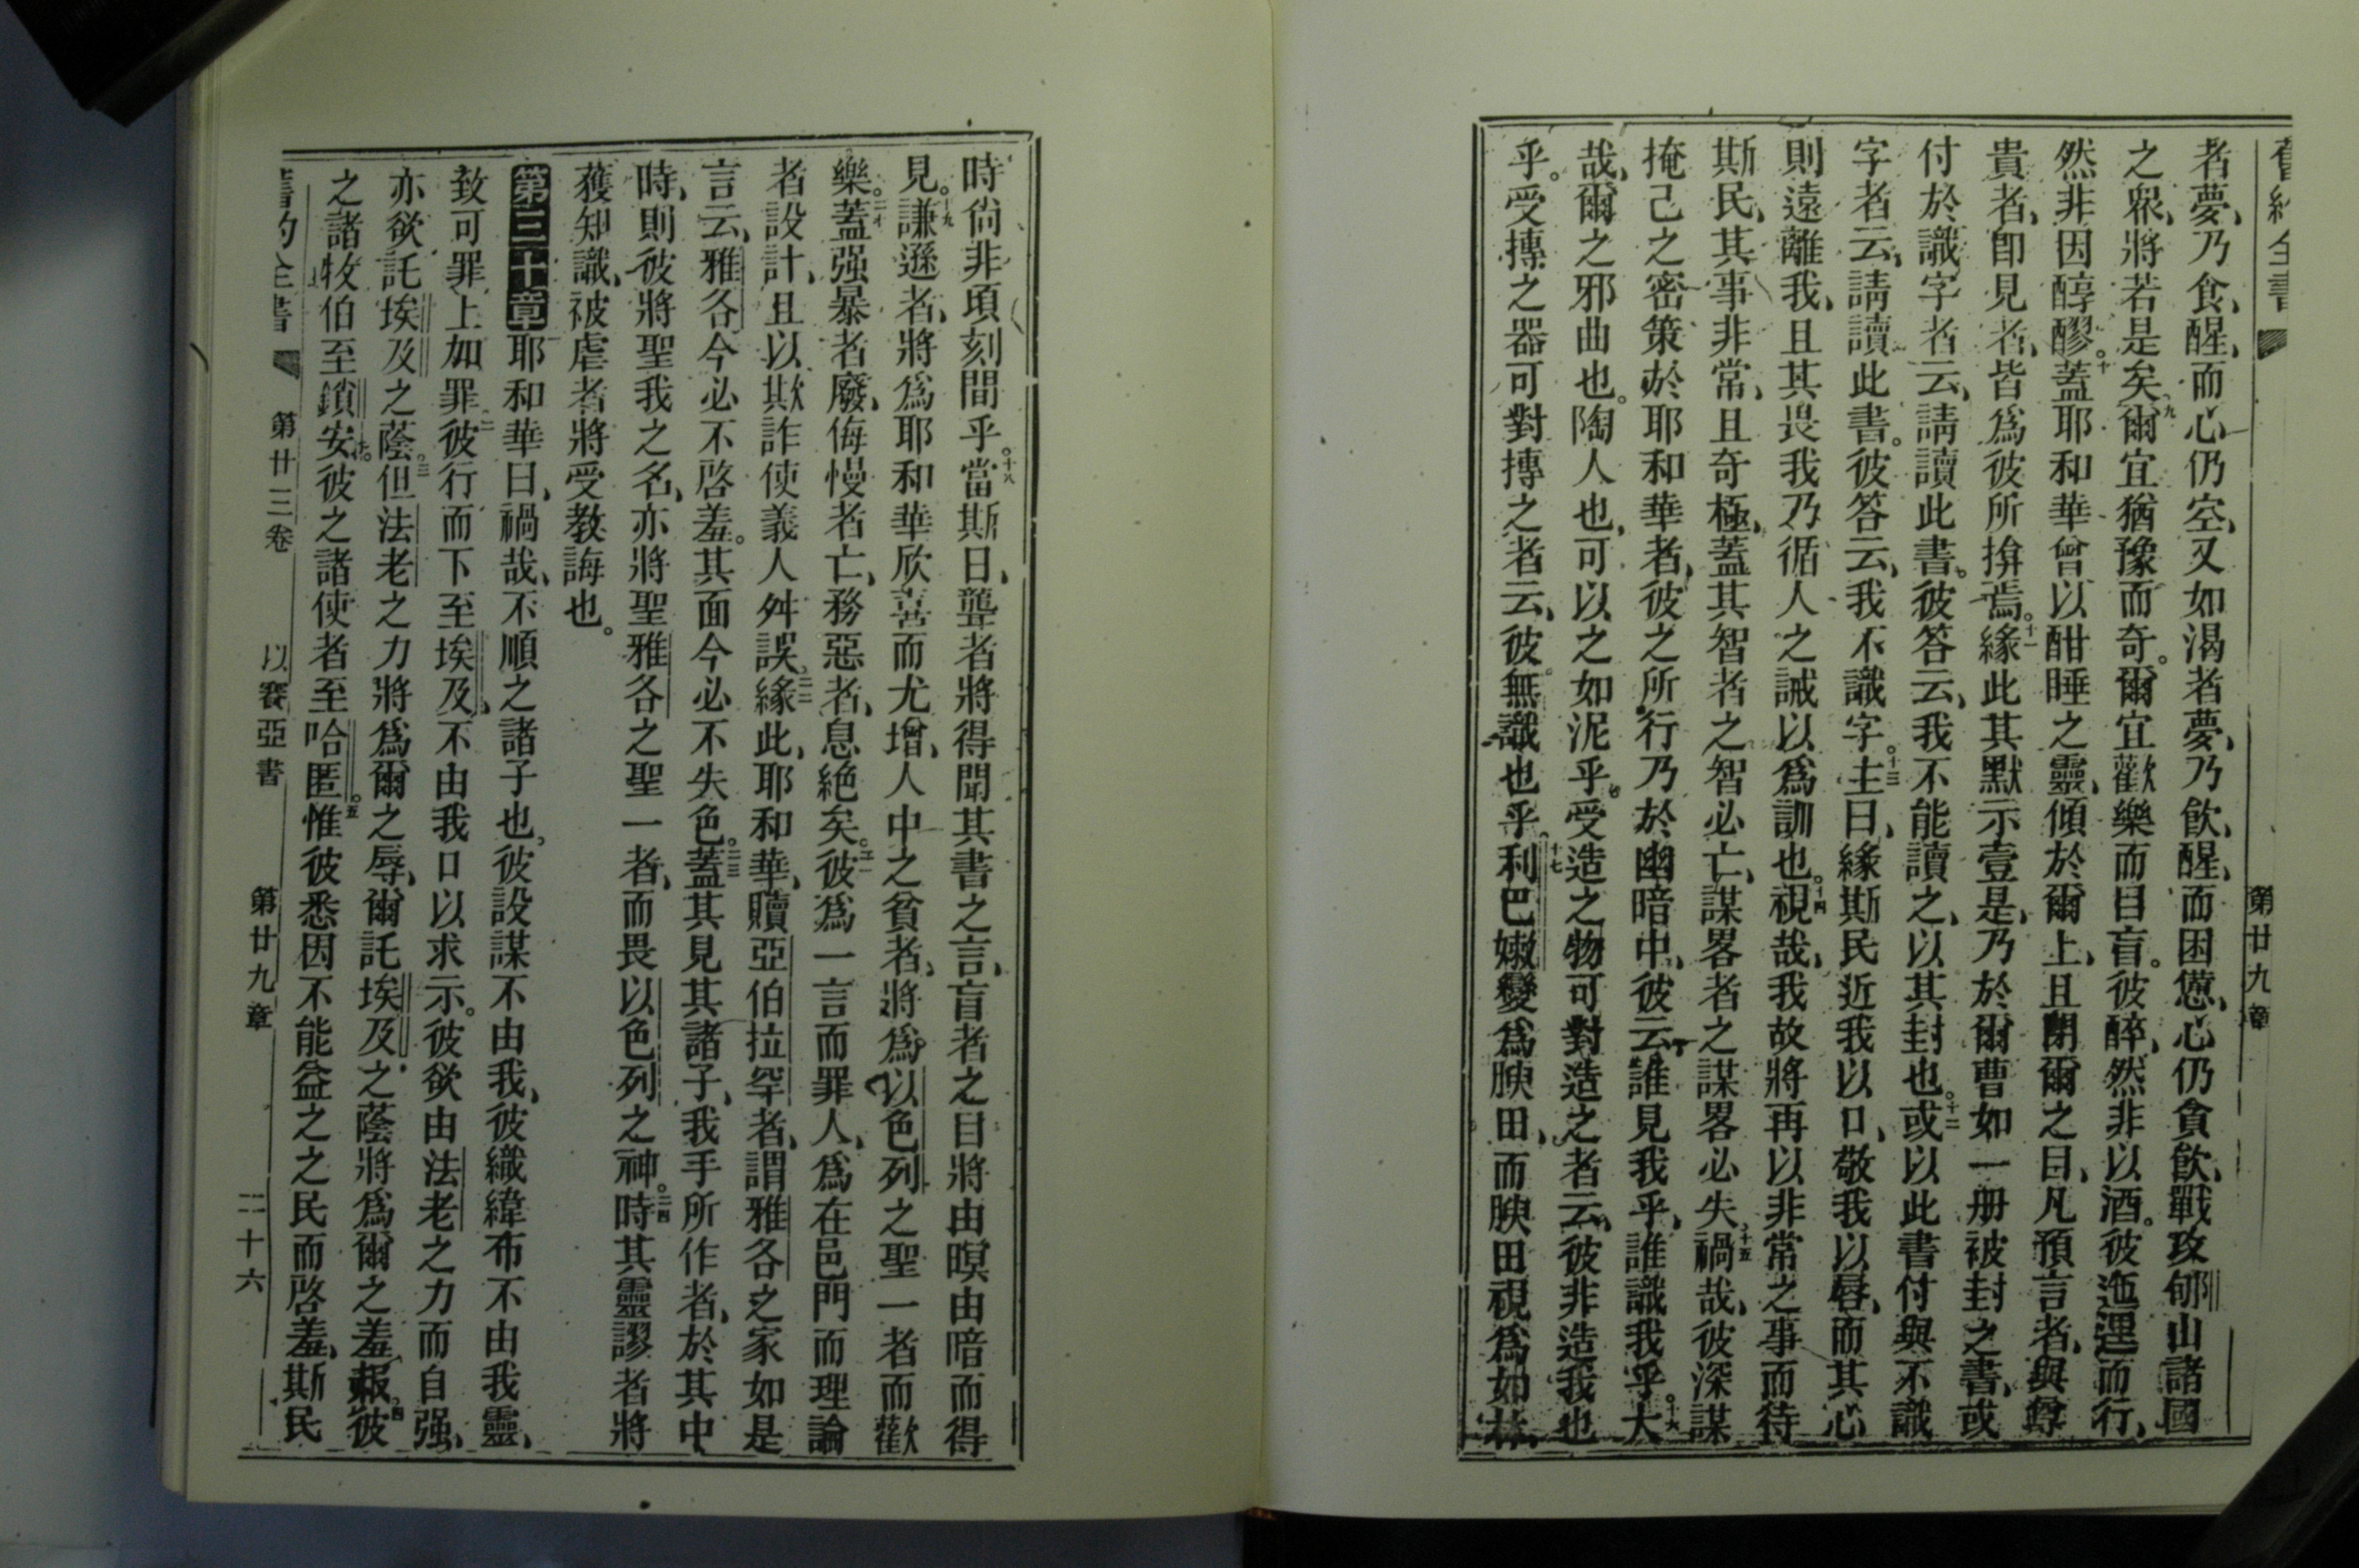 第廿九章
者夢、乃食、醒、而心仍空、又如渴者夢、乃飲、醒、而困憊、心仍貪飲、戰攻郇山諸國
之衆、將若是矣、九爾宜猶豫而奇。爾宜歡樂而目盲。彼醉、然非以酒。彼迤邐而行、
然非因醇醪。十蓋耶和華曾以酣睡之靈、傾於爾上、且閉爾之目、凡預言者、與尊
貴者、卽見者、皆爲彼所揜焉。十一緣此其默示壹是、乃於爾曹如一册被封之書、或
付於識字者云、請讀此書。彼答云、我不能讀之、以其封也。十二或以此書付與不識
字者云、請讀此書。彼答云、我不識字。十三主曰、緣斯民近我以口、敬我以唇、而其心
則遠離我、且其畏我乃循人之誡以爲訓也。十四視哉、我故將再以非常之事而待
斯民、其事非常、且奇極、蓋其智者之智必亡、謀畧者之謀畧必失、十五禍哉、彼深謀
掩己之密策於耶和華者、彼之所行乃於幽暗中、彼云、誰見我乎、誰識我乎。十六大
哉、爾之邪曲也。陶人也、可以之如泥乎。受造之物可對造之者云、彼非造我也
乎。受摶之器可對摶之者云、彼無識也乎。十七利巴嫩變爲腴田、而腴田視爲如林、
時尙非頃刻間乎。十八當斯日、聾者將得聞其書之言、盲者之目將由暝由暗而得
見。十九謙遜者、將爲耶和華欣喜而尤增、人中之貧者、將爲以色列之聖一者而歡
樂。二十蓋强暴者廢、侮慢者亡、務惡者、息絕矣。二一彼爲一言而罪人、爲在邑門而理論
者設計、且以欺詐使義人舛誤。二二緣此、耶和華、贖亞伯拉罕者、謂雅各之家如是
言云、雅各今必不啓羞。其面今必不失色。二三蓋其見其諸子、我手所作者、於其中
時、則彼將聖我之名、亦將聖雅各之聖一者、而畏以色列之神。二四時其靈謬者將
獲知識、被虐者將受教誨也。
第三十章耶和華曰、禍哉、不順之諸子也、彼設謀不由我、彼織緯布不由我靈、
致可罪上加罪。二彼行而下至埃及、不由我口以求示。彼欲由法老之力而自强、
亦欲託埃及之蔭。三但法老之力將爲爾之辱、爾託埃及之蔭將爲爾之羞赧。四彼
之諸牧伯至鎖安。彼之諸使者至哈匿。五惟彼悉因不能益之之民而啓羞、斯民
第廿三卷 以賽亞書 第廿九章 二十六